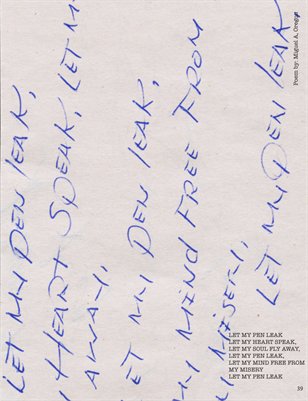 LET MY PEN LEAK,
HEART SPEAK, LET M
AWAY,
ET MY PEN LEAK,
MY MIND FREE FROM
MISERY,
LET MY PEN LEAK
Poem by: Miguel A. Oregon
LET MY PEN LEAK
LET MY HEART SPEAK,
LET MY SOUL FLY AWAY,
LET MY PEN LEAK,
LET MY MIND FREE FROM
MY MISERY
LET MY PEN LEAK
39